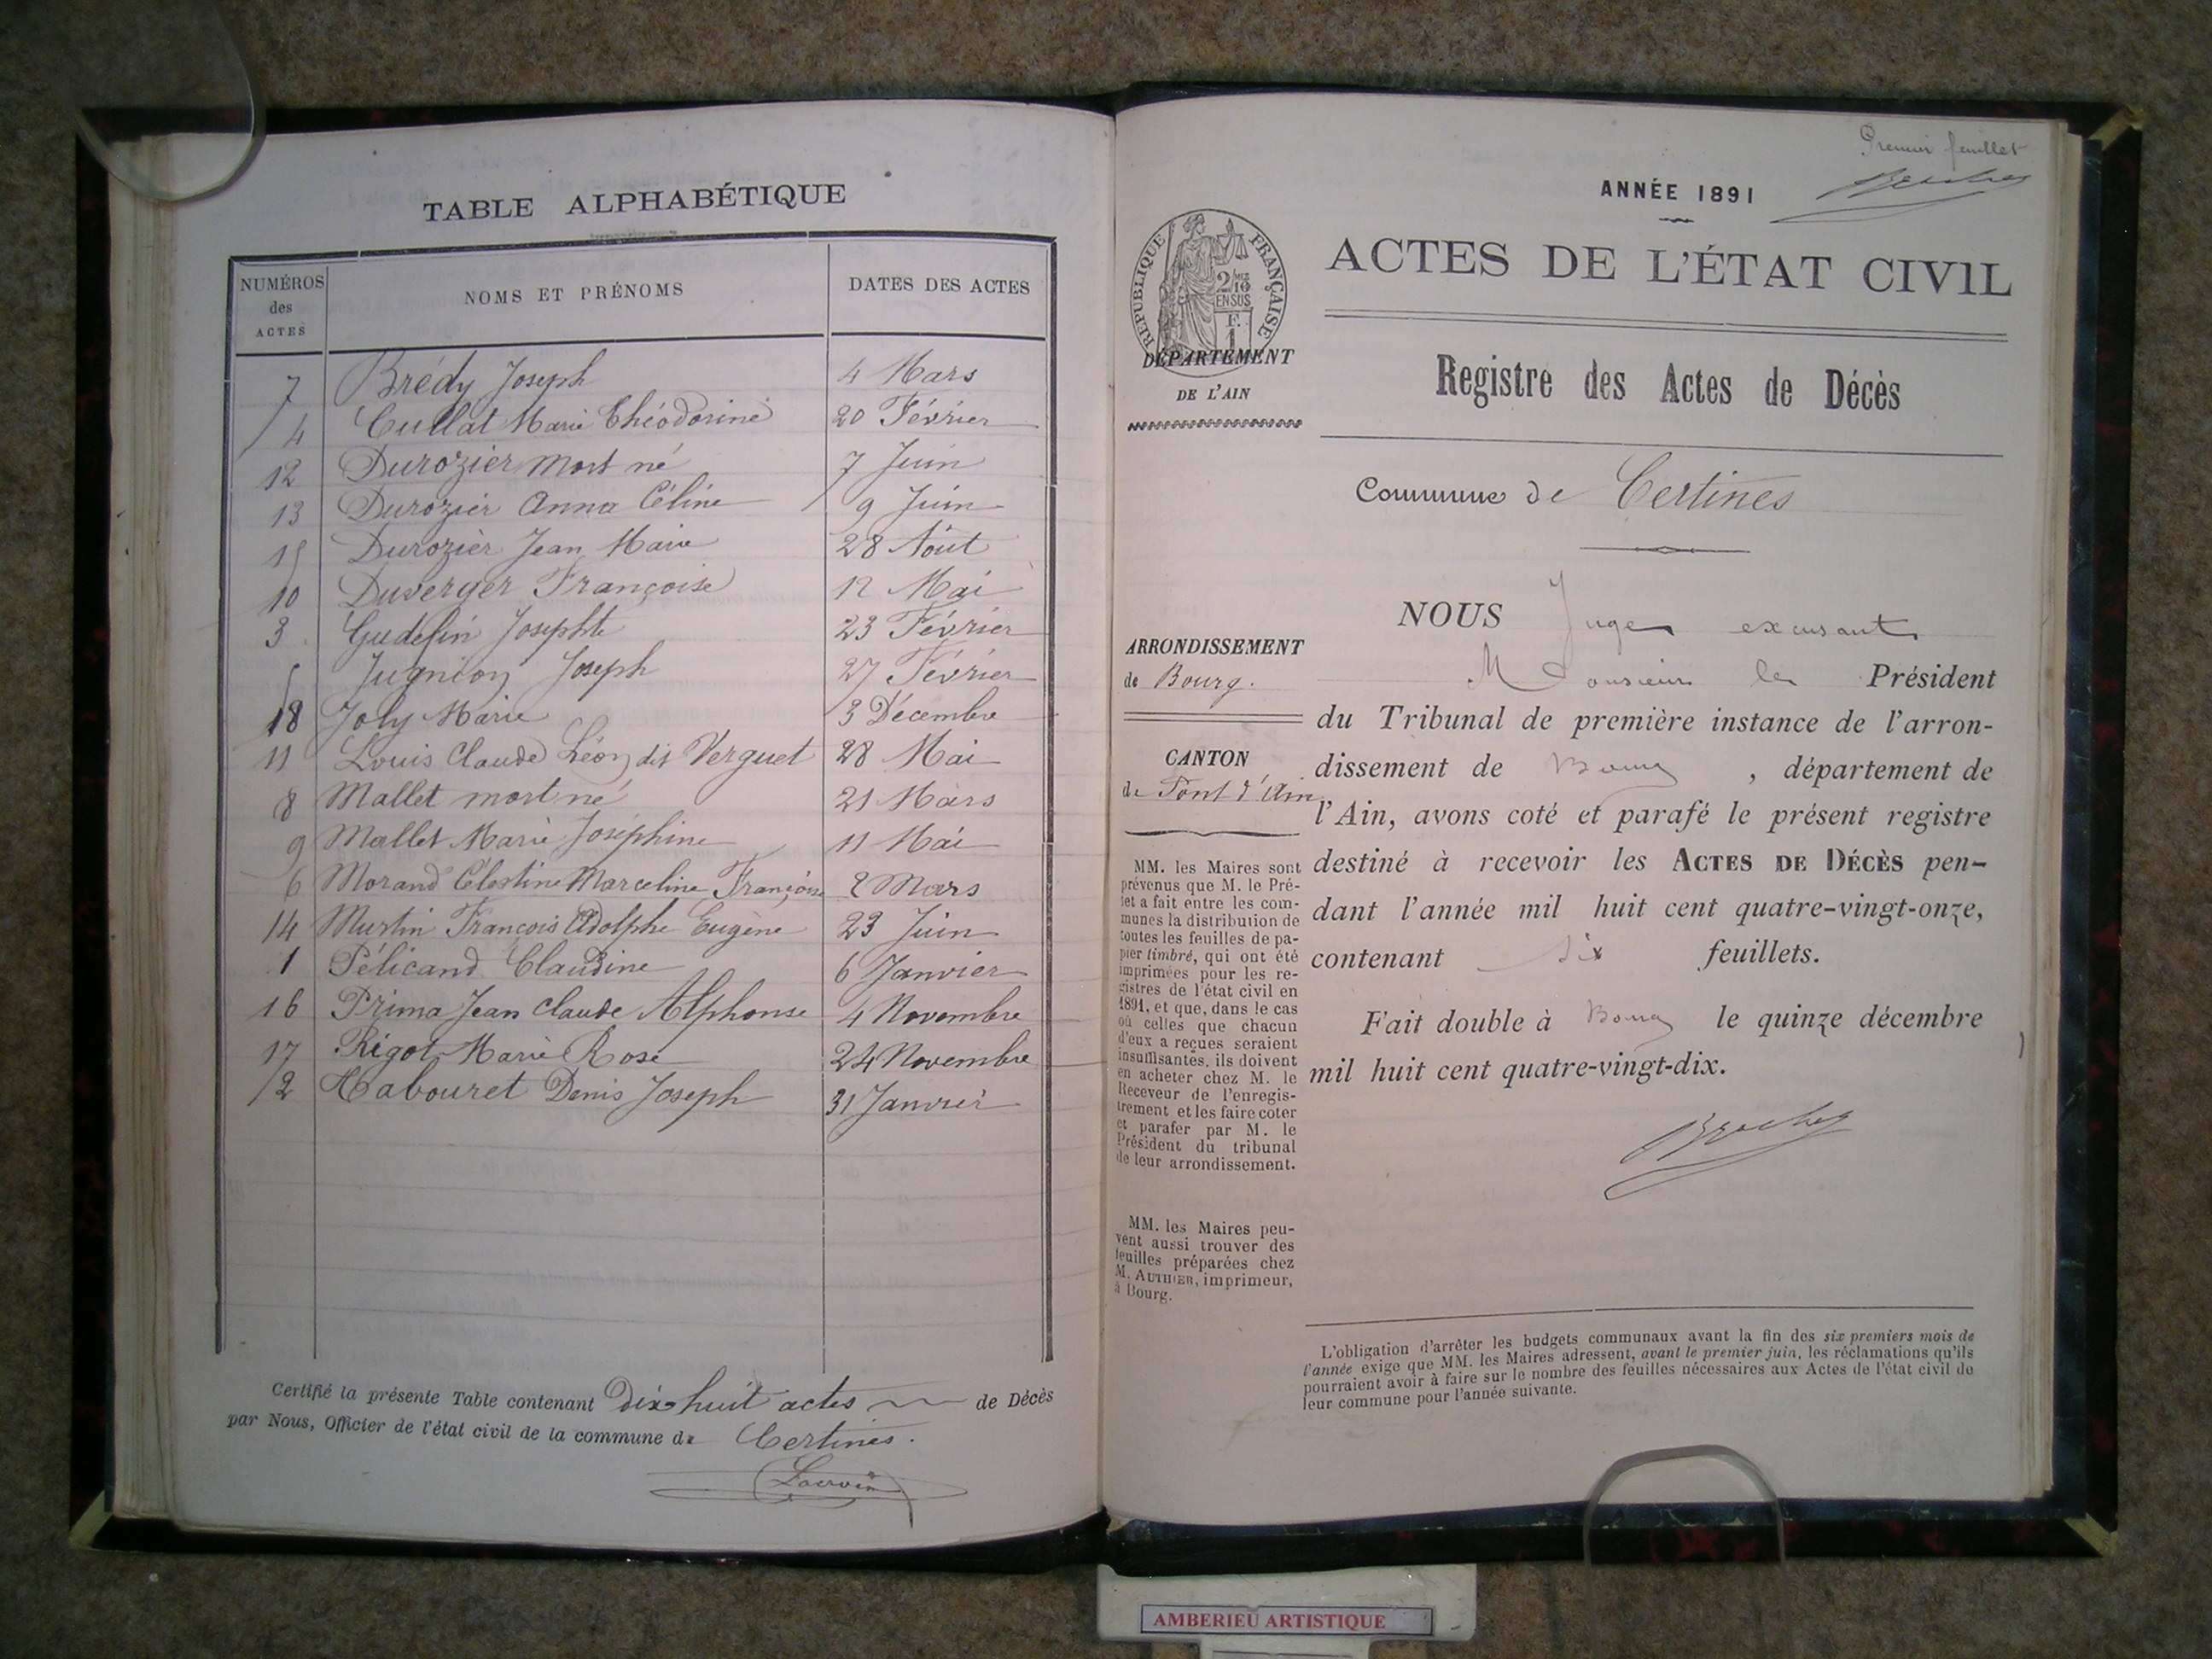 TABLE ALPHABÉTIQUE
NUMÉROS des ACTES
NOMS ET PRÉNOMS
DATES DES ACTES
7 Brédy Joseph 4 Mars
4 Cullat Marie Théodorine 20 Février
12 Durozier mort né 7 Juin
13 Durozier Anna Céline 9 Juin
15 Durozier Jean Marie 28 Août
10 Duverger Françoise 12 Mai
3 Gudefin Josephte 23 Février
5 Jugnion Joseph 27 Février
18 Joly Marie 3 Décembre
11 Louis Claude Léon dit Verguet 28 Mai
8 Mallet mort né 21 Mars
9 Mallet Marie Joséphine 11 Mai
6 Morand Célestine Marceline Françoise 2 Mars
14 Murtin François Adolphe Eugène 23 Juin
1 Pélicand Claudine 6 Janvier
16 Prima Jean Claude Alphonse 4 Novembre
17 Rigot Marie Rose 24 Novembre
2 Tabouret Denis Joseph 31 Janvier
Certifié la présente Table contenant Dix-huit actes de Décès
par Nous, Officier de l'état civil de la commune de Certines.
Lacroix
Premier feuillet
ANNÉE 1891
ACTES DE L'ÉTAT CIVIL
RÉPUBLIQUE FRANÇAISE
2/10 EN SUS
F. 1
DÉPARTEMENT
DE L'AIN
Registre des Actes de Décès
Commune de Certines
ARRONDISSEMENT
de Bourg.
CANTON
de Pont d'Ain
MM. les Maires sont
prévenus que M. le Pré-
fet a fait entre les com-
munes la distribution de
toutes les feuilles de pa-
pier timbré, qui ont été
imprimées pour les re-
gistres de l'état civil en
1891, et que, dans le cas
où celles que chacun
d'eux a reçues seraient
insuffisantes, ils doivent
en acheter chez M. le
Receveur de l'enregis-
trement et les faire coter
et parafer par M. le
Président du tribunal
de leur arrondissement.
MM. les Maires peu-
vent aussi trouver des
feuilles préparées chez
M. AUTHIER, imprimeur,
à Bourg.
NOUS Juge excusant
Monsieur le Président
du Tribunal de première instance de l'arron-
dissement de Bourg, département de
l'Ain, avons coté et parafé le présent registre
destiné à recevoir les ACTES DE DÉCÈS pen-
dant l'année mil huit cent quatre-vingt-onze,
contenant six feuillets.
Fait double à Bourg le quinze décembre
mil huit cent quatre-vingt-dix.
L'obligation d'arrêter les budgets communaux avant la fin des six premiers mois de
l'année exige que MM. les Maires adressent, avant le premier juin, les réclamations qu'ils
pourraient avoir à faire sur le nombre des feuilles nécessaires aux Actes de l'état civil de
leur commune pour l'année suivante.
AMBERIEU ARTISTIQUE